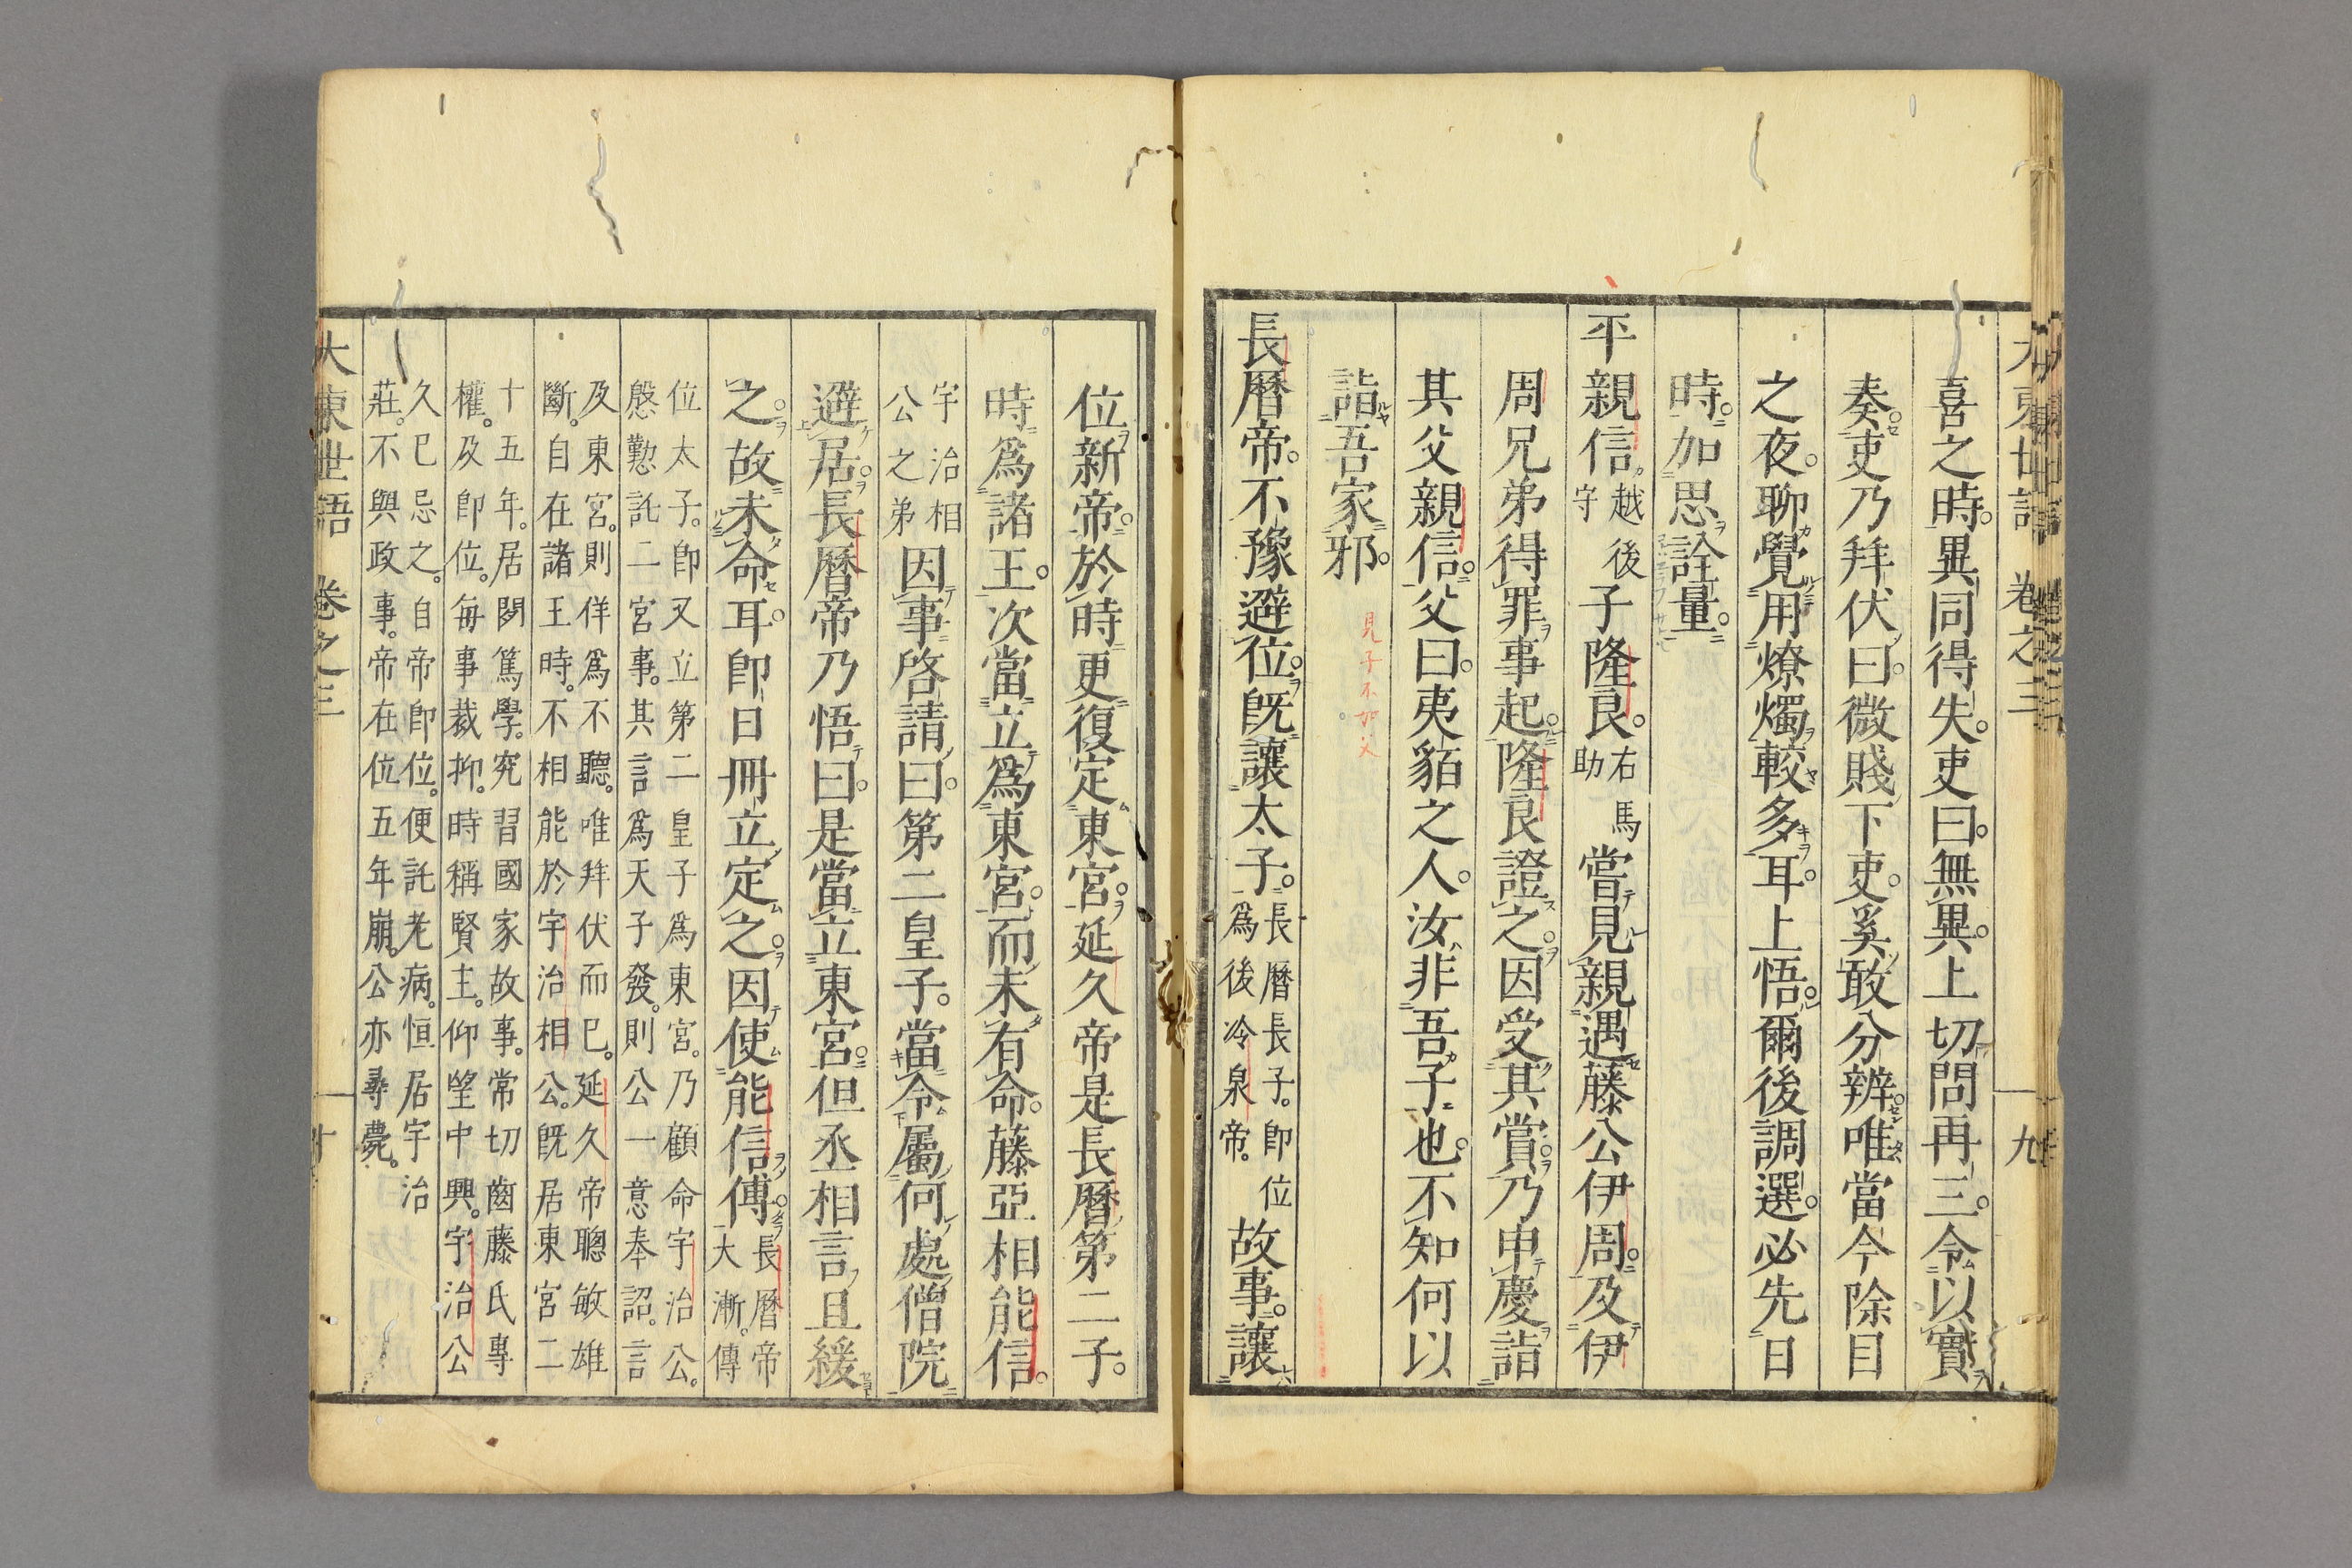 大東世語 卷之三 九
喜之時。異同得失。吏曰。無異。上切問再三。令以實
奏。吏乃拜伏曰。微賤下吏。奚敢分辨。唯當今除目
之夜。聊覺用燎燭較多耳。上悟。爾後調選。必先日
時。加思詮量。
平親信越後守子隆良。右馬助嘗見親遇藤公伊周。及伊
周兄弟得罪事起。隆良證之。因受其賞。乃申慶詣
其父親信。父曰。夷貊之人。汝非吾子也。不知何以
詣吾家邪。
見子不如父
長曆帝。不豫避位。既讓太子。長曆長子。即位爲後冷泉帝。故事。讓
位新帝。於時更復定東宮。延久帝是長曆第二子。
時爲諸王。次當立爲東宮。而未有命。藤亞相能信。
宇治相公之弟因事啓請曰。第二皇子。當令屬何處僧院
避居。長曆帝乃悟曰。是當立東宮。但丞相言且緩
之。故未命耳。即日冊立定之。因使能信傅。長曆帝大漸。傳
位太子。即又立第二皇子爲東宮。乃顧命宇治公。
慇懃託二宮事。其言爲天子發。則公一意奉詔。言
及東宮。則佯爲不聽。唯拜伏而已。延久帝聰敏雄
斷。自在諸王時。不相能於宇治相公。既居東宮二
十五年。居閑篤學。究習國家故事。常切齒藤氏專
權。及即位。每事裁抑。時稱賢主。仰望中興。宇治公
久已忌之。自帝即位。便託老病。恒居宇治
莊。不與政事。帝在位五年崩。公亦尋薨。
大東世語 卷之三 十